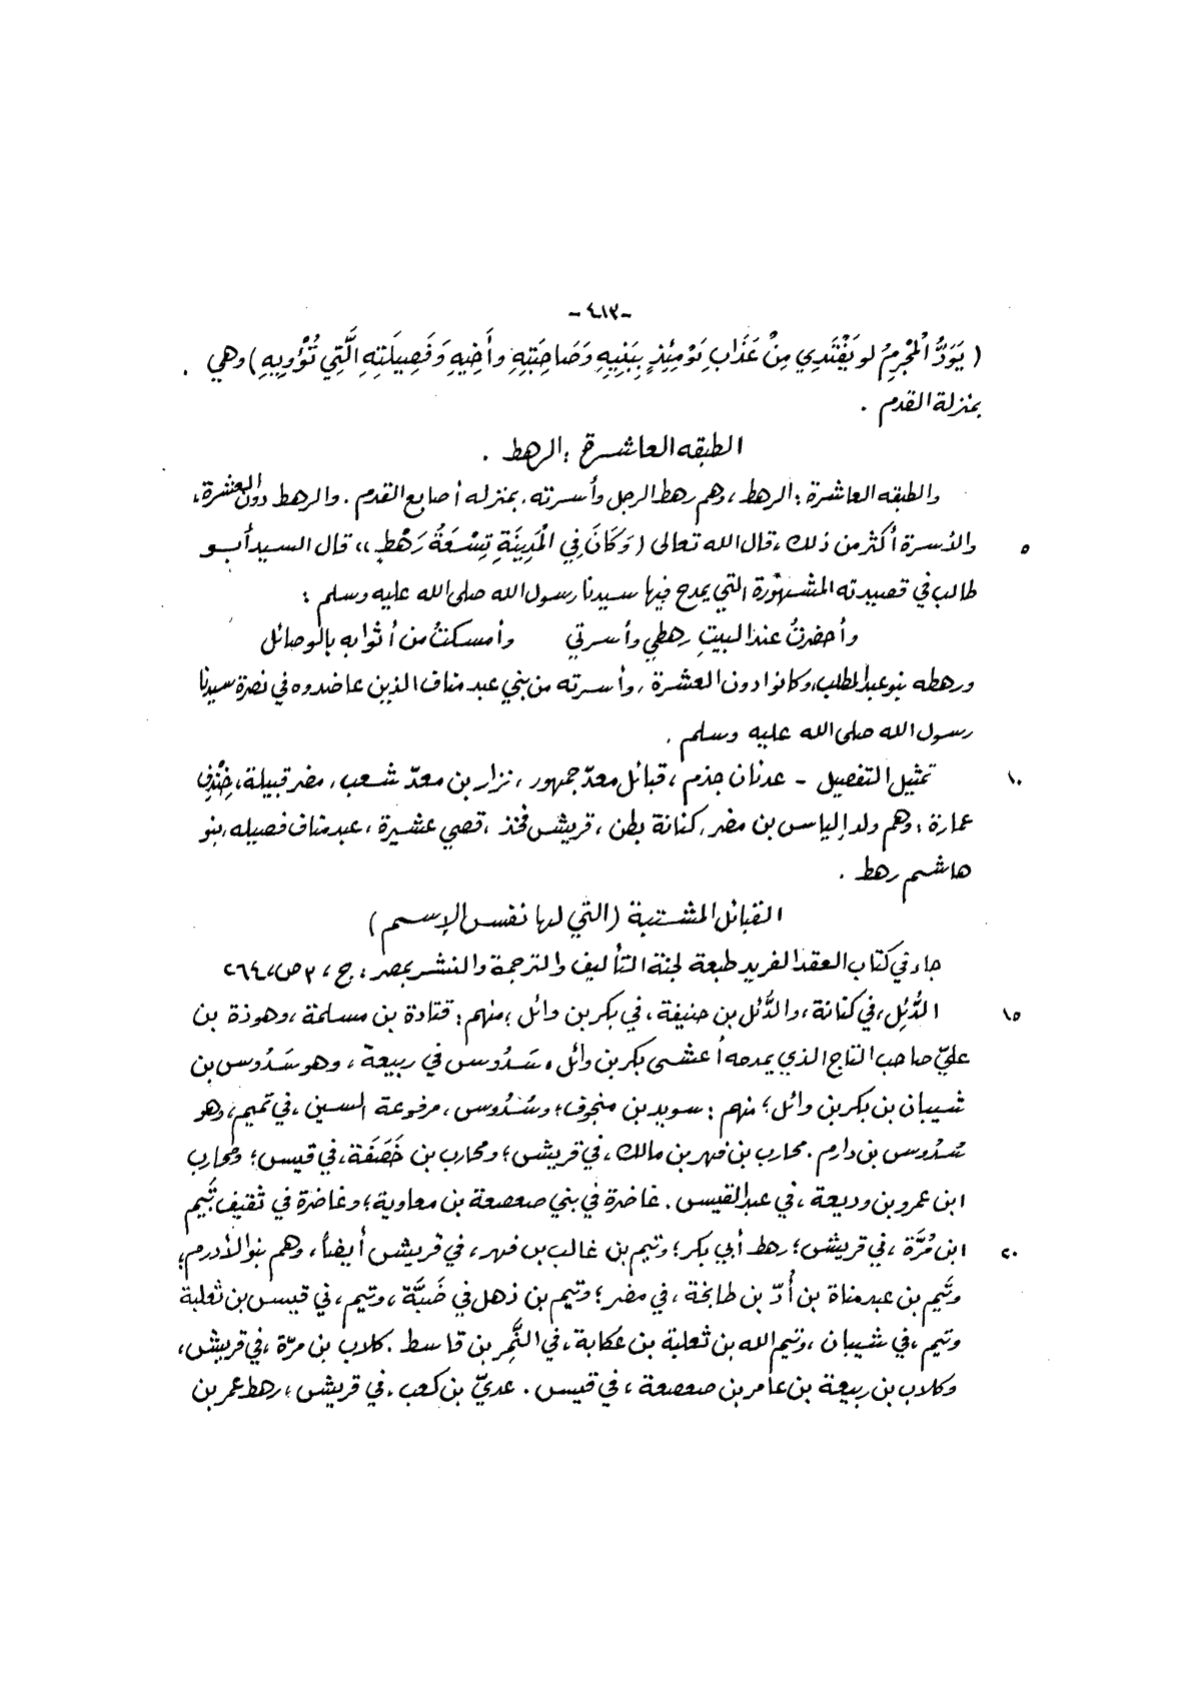 -٤١٣-
( يَوَدُّ الْمُجْرِمُ لو يَفْتَدِي مِنْ عَذَابِ يَوْمِئِذٍ بِبَنِيهِ وَصَاحِبَتِهِ وأَخِيهِ وَفَصِيلَتِهِ الَّتِي تُؤْوِيهِ ) وهي
بمنزلة القدم .
الطبقه العاشرة : الرهط .
والطبقه العاشرة : الرهط ، وهم رهط الرجل وأسرته . بمنزله أصابع القدم . والرهط دون العشرة ،
٥ والأسرة أكثر من ذلك ، قال الله تعالى ( وَكَانَ فِي الْمَدِينَةِ تِسْعَةُ رَهْطٍ ،، قال السيد أبو
طالب في قصيدته المشهورة التي يمدح فيها سيدنا رسول الله صلى الله عليه وسلم :
وأحضرتُ عند البيتِ رهطي وأسرتي وأمسكتُ من أثوابه بالوصائل
ورهطه بنو عبد المطلب، وكانوا دون العشرة ، وأسرته من بني عبد مناف الذين عاضدوه في نصرة سيدنا
رسول الله صلى الله عليه وسلم .
١٠ تمثيل التفصيل - عدنان جذم ، قبائل معدّ جمهور ، نزار بن معدّ شعب ، مضر قبيلة ، خِنْدِف
عمارة ، وهم ولد إلياس بن مضر ، كنانة بطن ، قريش فخذ ، قصي عشيرة ، عبد مناف فصيله ، بنو
هاشم رهط .
القبائل المشتبة ( التي لها نفس الإسم )
جاء في كتاب العقد الفريد طبعة لجنة التأليف والترجمة والنشر بمصر : ج ، ٣ ص، ٢٦٤
١٥ الدُّئِل ، في كنانة ، والدُّئل بن حنيفة ، في بكر بن وائل ؛ منهم : قتادة بن مسلمة ، وهوذة بن
عليّ صاحب التاج الذي يمدحه أعشى بكر بن وائل . سَدُوس في ربيعة ، وهو سَدُوس بن
شيبان بن بكر بن وائل ؛ منهم : سويد بن منجوف ؛ وسُدُوس ، مرفوعة السين ، في تميم ، وهو
سُدُوس بن دارم . محارب بن فهر بن مالك ، في قريش ؛ ومحارب بن خَصَفَة ، في قيس ؛ ومحارب
ابن عمرو بن وديعة ، في عبد القيس . غاضرة في بني صعصعة بن معاوية ؛ وغاضرة في ثقيف تَيم
٢٠ ابن مُرَّة ، في قريش ؛ رهط أبي بكر ؛ وتيم بن غالب بن فهر ، في قريش أيضاً ، وهم بنو الأدرم ؛
وتَيم بن عبد مناة بن أُدّ بن طابخة ، في مضر ؛ وتيم بن ذهل في ضَبَّة ، وتيم ، في قيس بن ثعلبة
وتيم ، في شيبان ، وتيم الله بن ثعلبة بن عكابة ، في النَّمِر بن قاسط . كلاب بن مرّة ، في قريش ،
وكلاب بن ربيعة بن عامر بن صعصعة ، في قيس . عديّ بن كعب ، في قريش ، رهط عمر بن